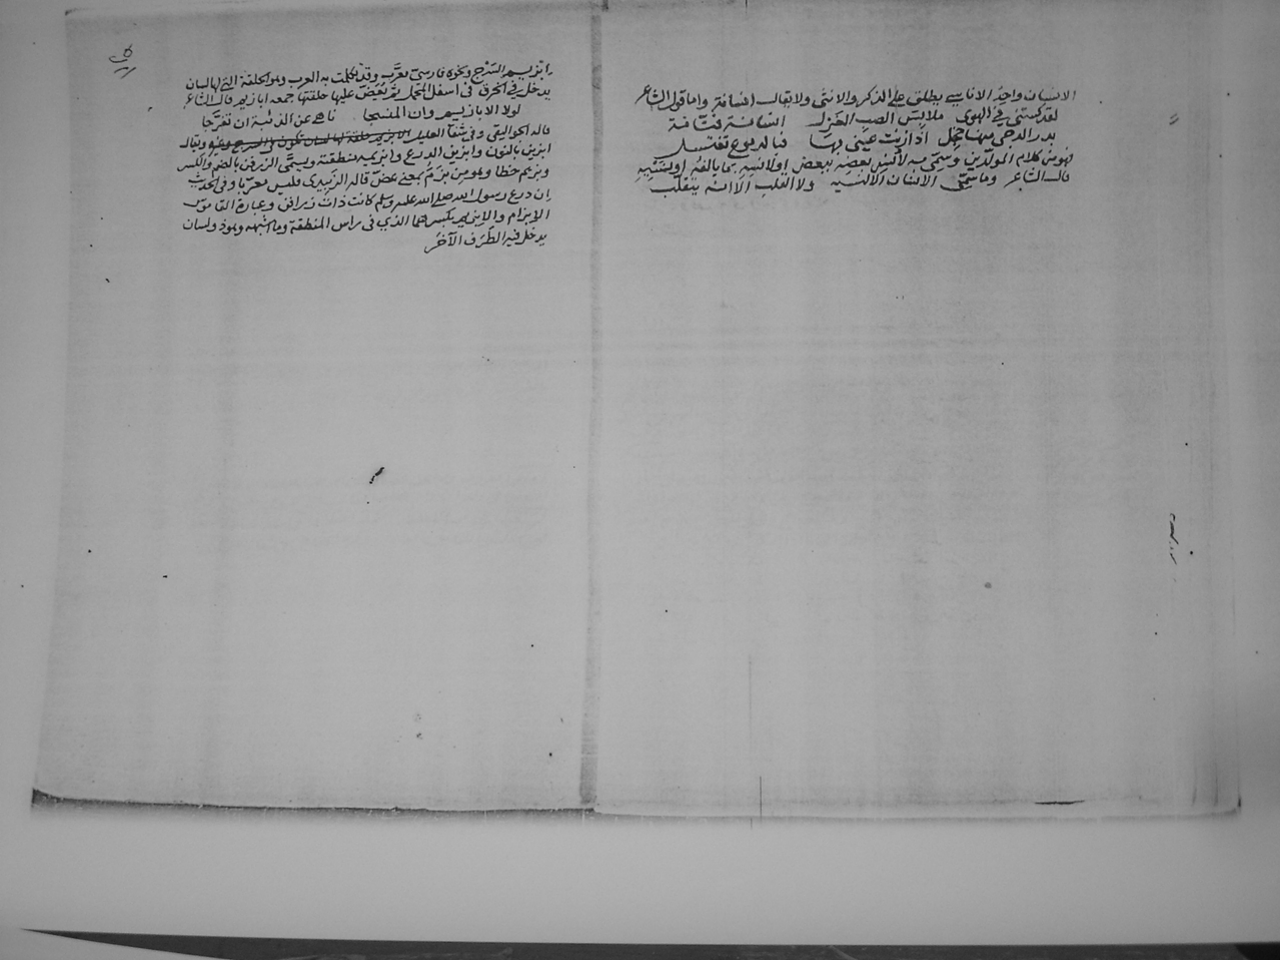 الانسان واحد الاناسي يطلق على الذكر والانثى ولا يقال انسانة واما قول الشاعر
لقد كستني في الهوى ملابس الصب الغزل انسانة فتانة
بدر الدجى منها خجل اذا زنت عيني بها فبالدموع تغتسل
فهو من كلام المولدين وسمي به لانس بعضه ببعض او لانسه بما يالفه او لنسيه
قال الشاعر وما سمي الانسان الا لنسيه ولا القلب الا انه يتقلب
ابزيم السرج ونحوه فارسي معرب وقد تكلمت به العرب وهو الحلقة التي لها لسان
يدخل في الخرق في اسفل المحمل ثم تعض عليها حلقتها جمعه ابازيم قال الشاعر
لولا الابازيم وان المنسجا ناهى عن الذئبة ان تفرجا
قاله الجواليقي وفي شفا الغليل الابزيم حلقة لها لسان تكون في السرج وغيره ويقال
ابزين بالنون وابزين الدرع وابزيم منطقة ويسمى الزرفن بالضم والكسر
وبزيم خطا وهو من بزم بمعنى عض قاله الزبيدي فليس معربا وفي الحديث
ان درع رسول الله صلى الله عليه وسلم كانت ذات زرافن وعبارة القاموس
الابزام والابزيم بكسرهما الذي في راس المنطقة وما اشبهه وهو ذو لسان
يدخل فيه الطرف الآخر